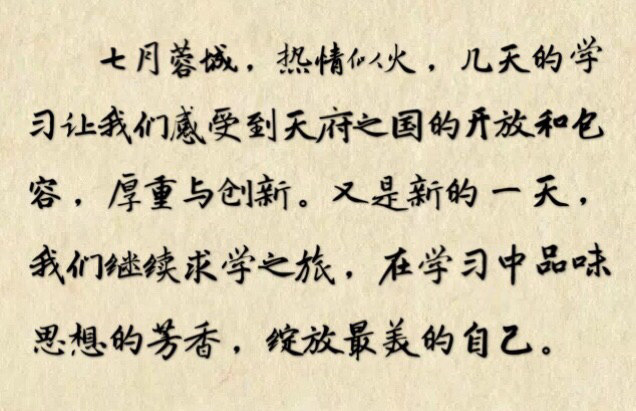 七月蓉城，热情似火，几天的学
习让我们感受到天府之国的开放和包
容，厚重与创新。又是新的一天，
我们继续求学之旅，在学习中品味
思想的芳香，绽放最美的自己。